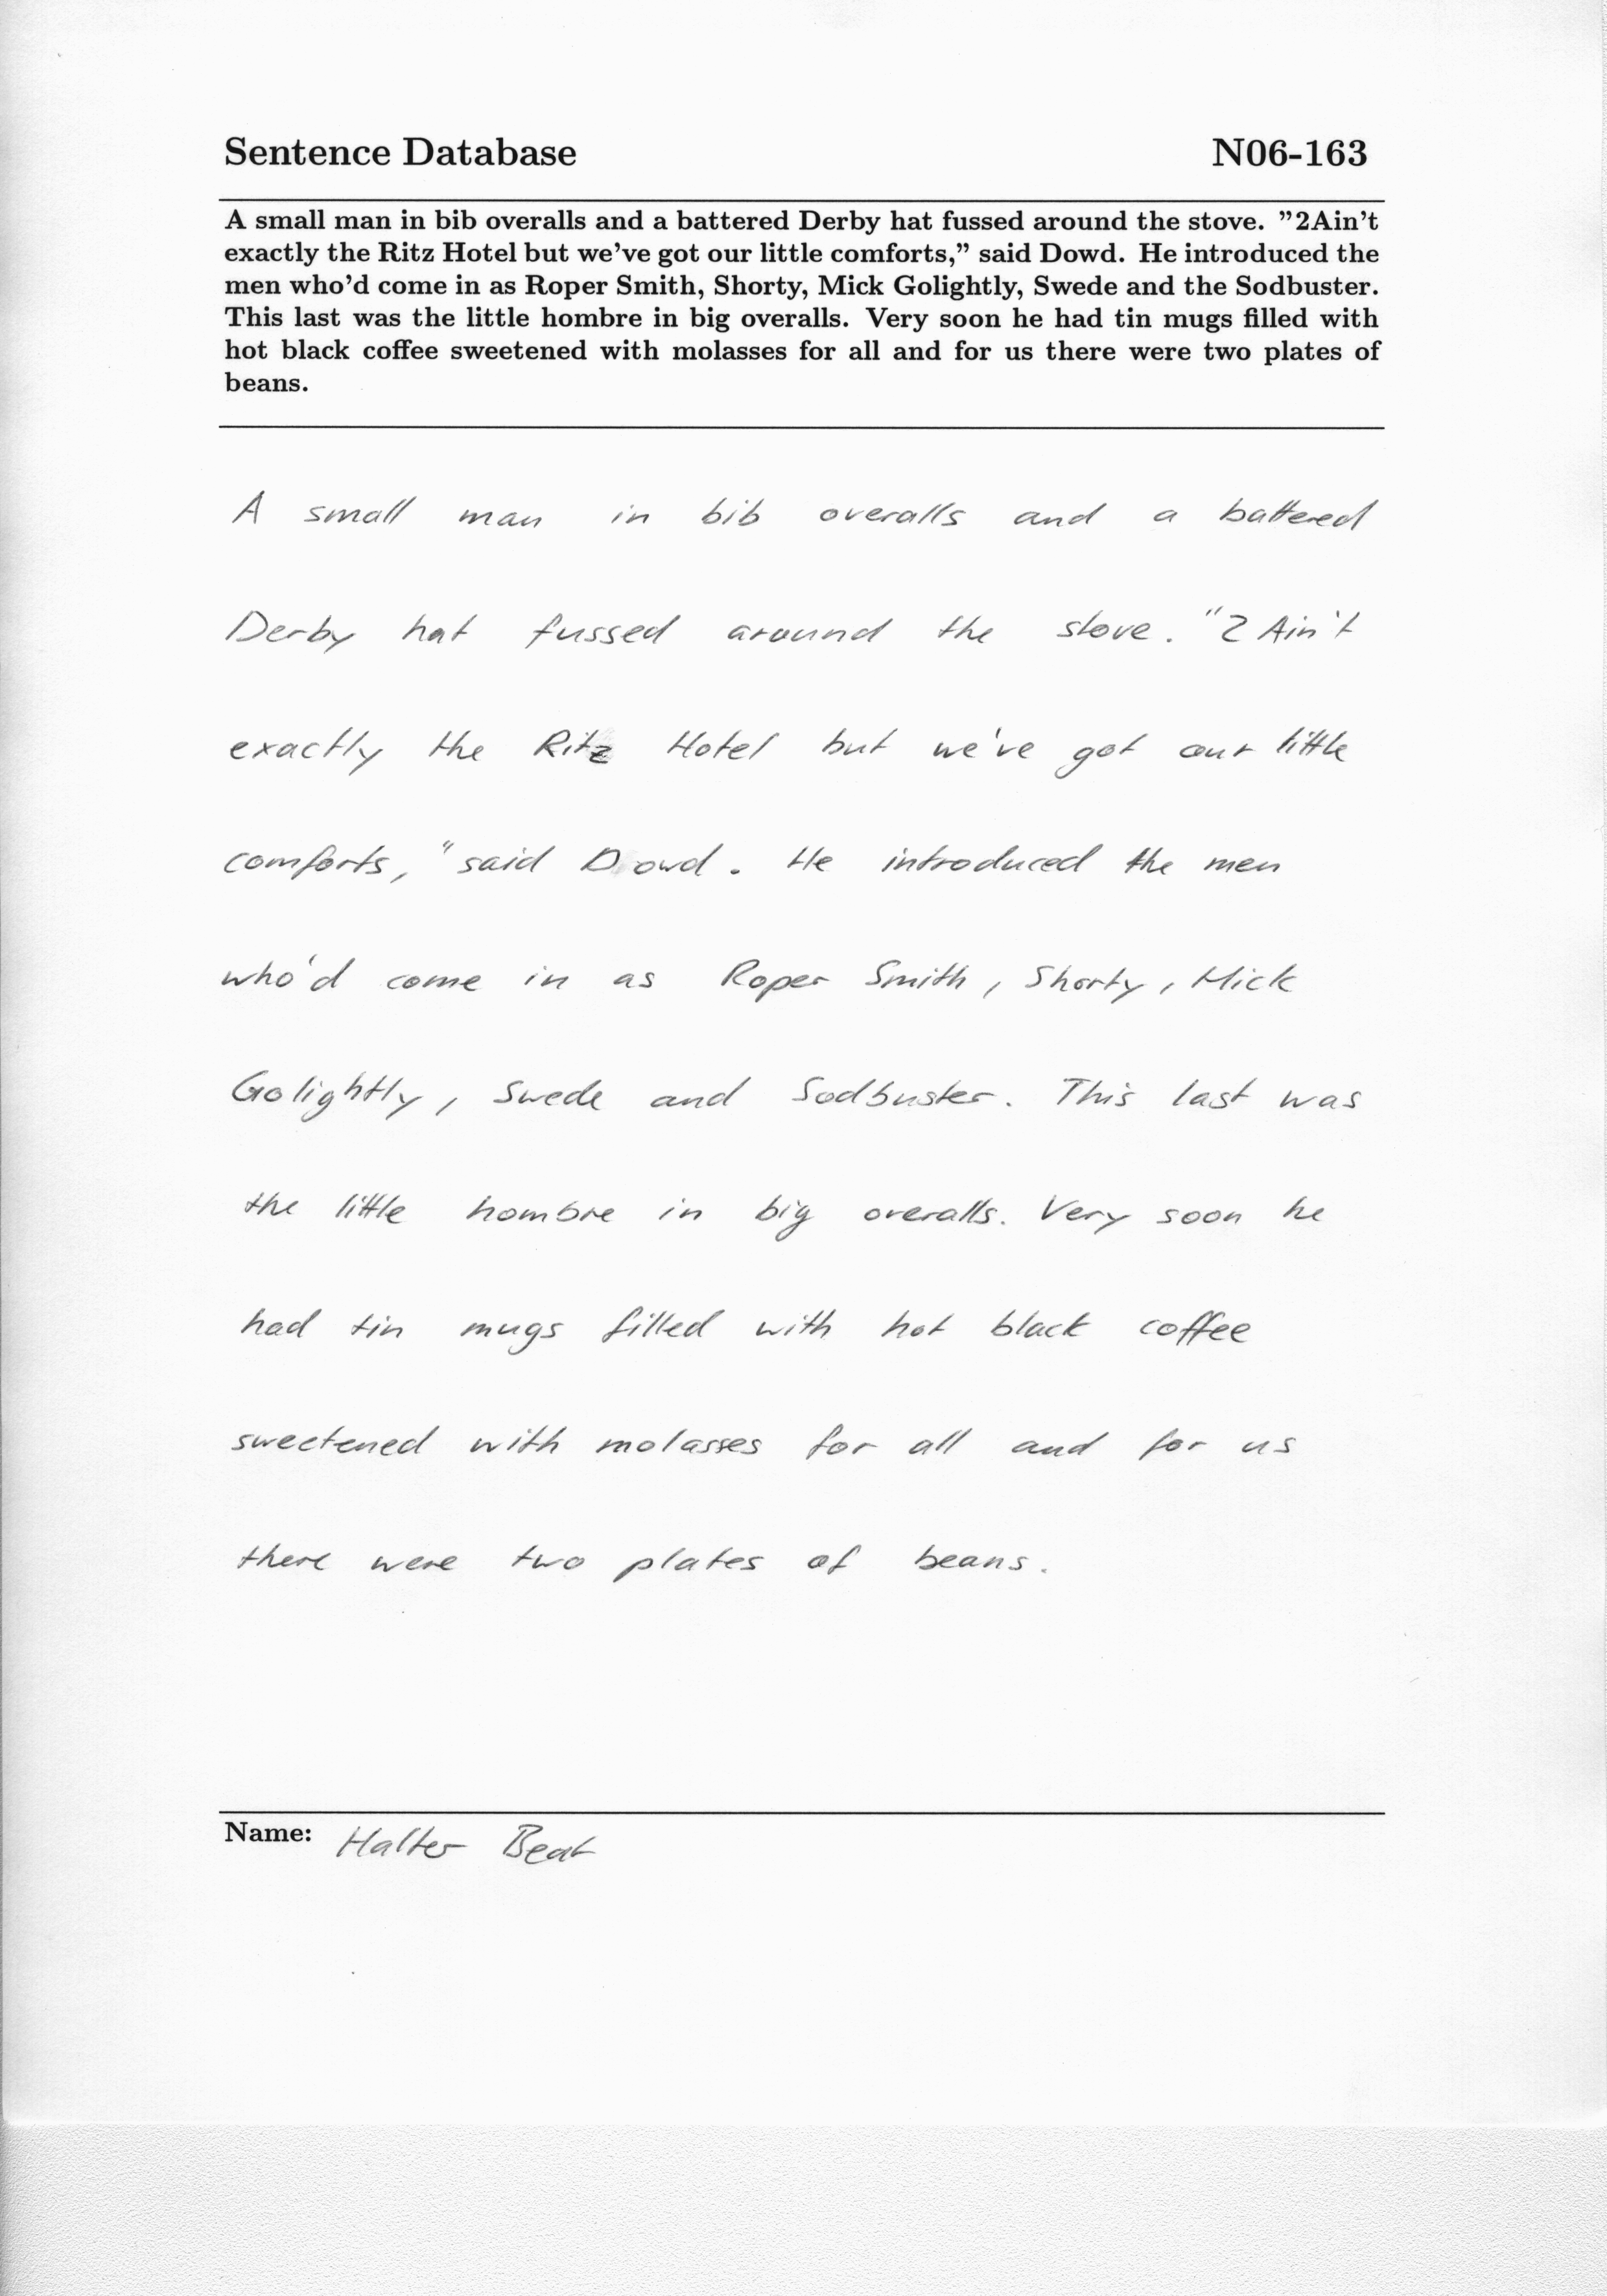 Sentence Database N06-163
A small man in bib overalls and a battered Derby hat fussed around the stove. ”2Ain’t
exactly the Ritz Hotel but we’ve got our little comforts,” said Dowd. He introduced the
men who’d come in as Roper Smith, Shorty, Mick Golightly, Swede and the Sodbuster.
This last was the little hombre in big overalls. Very soon he had tin mugs filled with
hot black coffee sweetened with molasses for all and for us there were two plates of
beans.
A small man in bib overalls and a battered
Derby hat fussed around the stove. "2 Ain't
exactly the Ritz Hotel but we've got our little
comforts," said Dowd. He introduced the men
who'd come in as Roper Smith, Shorty, Mick
Golightly, Swede and Sodbuster. This last was
the little hombre in big overalls. Very soon he
had tin mugs filled with hot black coffee
sweetened with molasses for all and for us
there were two plates of beans.
Name: Halter Beat